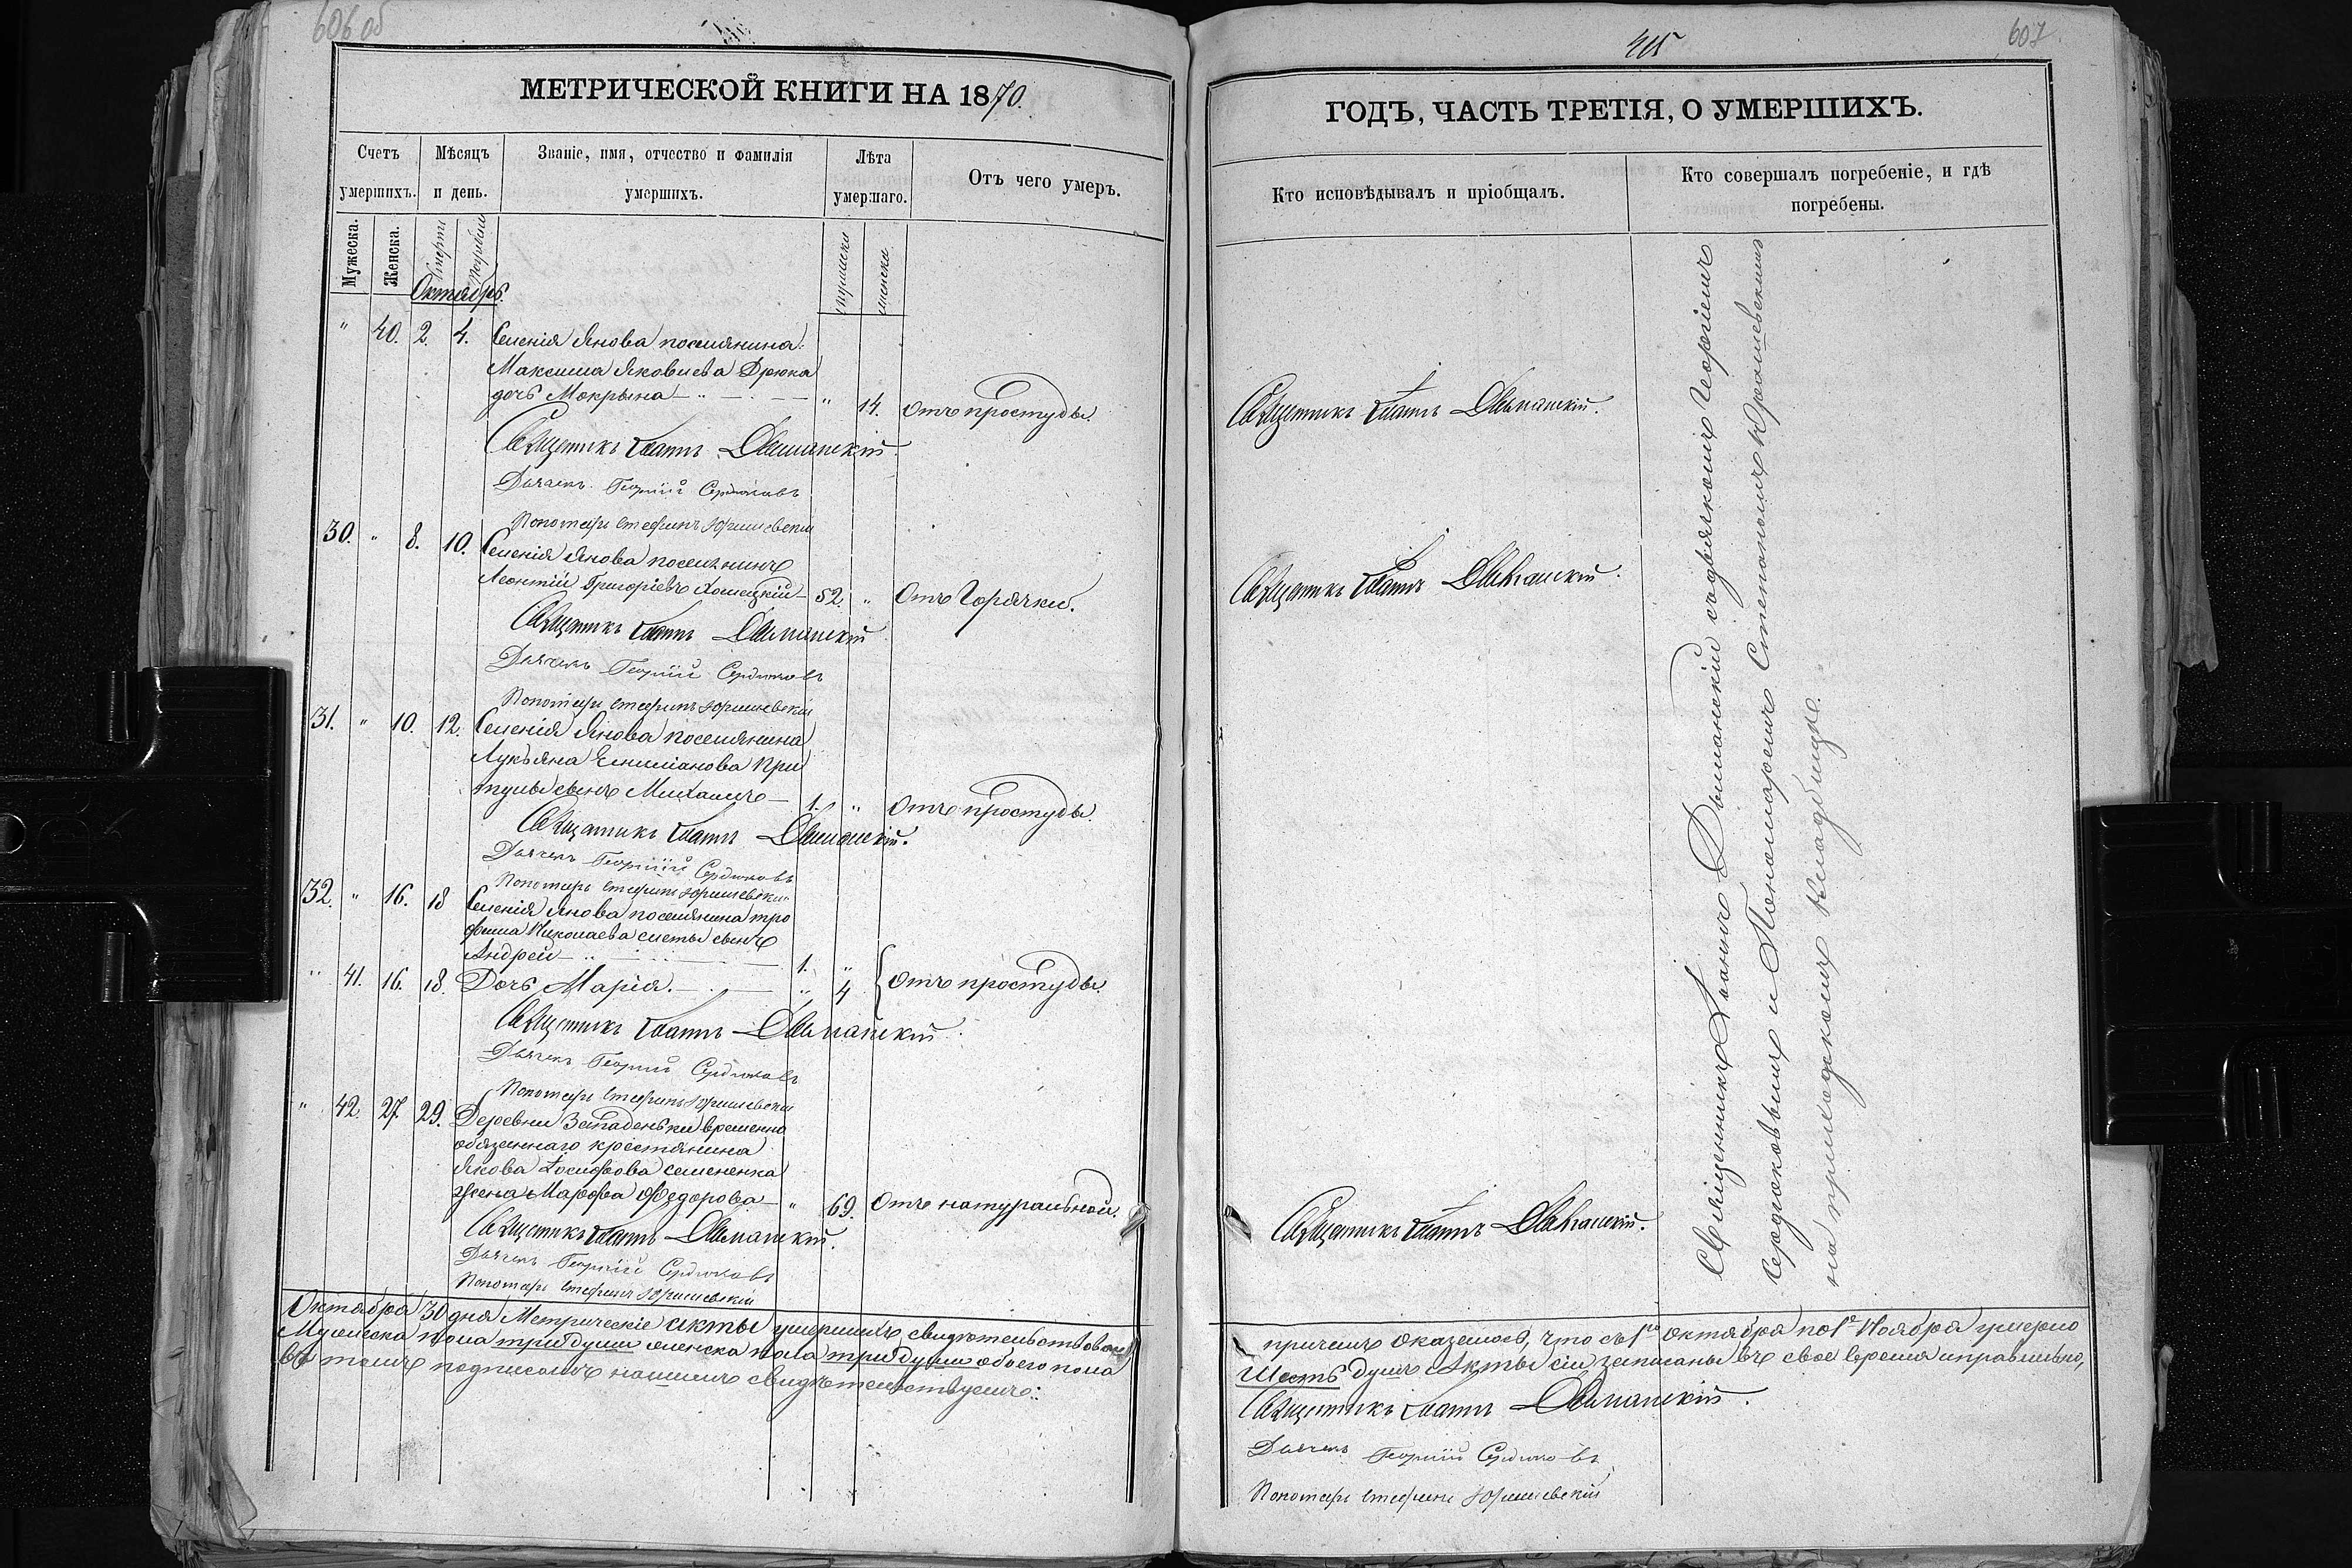 606 об
МЕТРИЧЕСКОЙ КНИГИ НА 1870.
Счетъ умершихъ.
Мѣсяцъ и день.
Званіе, имя, отчество и фамилія умершихъ.
Лѣта умершаго.
Отъ чего умеръ.
Мужеска.
Женска.
Смерти
Погребенія
Октябрь.
мужеска
женска
" 40. 2. 4. Селенія Янова поселянина
Максима Яковлева Дрюка
дочь Мокрына " 14. Отъ простуды.
Священникъ Іоаннъ Дыманскій.
Дьячекъ Георгій Сердюковъ
Пономарь Стефанъ Юрашевскій
30. " 8. 10. Селенія Янова поселянинъ
Леонтій Григоріевъ 52. " Отъ Горячки.
Священникъ Іоаннъ Дыманскій
Дьячекъ Георгій Сердюковъ
Пономарь Стефанъ Юрашевскій
31. " 10. 12. Селенія Янова поселянина
Лукьяна При
тулы сынъ Михаилъ 1. " Отъ простуды.
Священникъ Іоаннъ Дыманскій.
Дьячекъ Георгій Сердюковъ
Пономарь Стефанъ Юрашевскій
32. " 16. 18 Селенія Янова поселянина Тро
фима Николаева сынъ
Андрей 1. "
" 41. 16. 18. Дочь Марія. " 4 Отъ простуды.
Священникъ Іоаннъ Дыманскій.
Дьячекъ Георгій Сердюковъ
Пономарь Стефанъ Юрашевскій
" 42. 27. 29. Деревни Западеньки временно
обязаннаго крестянина
Якова Іосифова Семененка
жена Марфа Федорова " 69. Отъ натуральной.
Священникъ Іоаннъ Дыманскій.
Дьячекъ Георгій Сердюковъ
Пономарь Стефанъ Юрашевскій
Октября 30 дня Метрическіе акты умершихъ свидѣтельствованы
Мужеска пола три души женска пола три души обоего пола
въ томъ подписомъ нашимъ свидѣтельствуемъ:
415
607
ГОДЪ, ЧАСТЬ ТРЕТІЯ, О УМЕРШИХЪ.
Кто исповѣдывалъ и пріобщалъ.
Кто совершалъ погребеніе, и гдѣ погребены.
Священникъ Іоаннъ Дыманскій.
Священникъ Іоаннъ Дыманскій.
Священникъ Іоаннъ Дыманскій.
Священникъ Іоаннъ Дыманскій содьячкомъ Георгіемъ
Сердюковымъ и Пономаремъ Стефаномъ Юрашевскимъ
на приходскомъ кладбищѣ.
причемъ оказалось, что съ 1го Октября по 1е Ноября умерло
Шесть душъ Акты сіи записаны въ свое время и правильно,
Священникъ Іоаннъ Дыманскій.
Дьячекъ Георгій Сердюковъ
Пономарь Стефанъ Юрашевскій